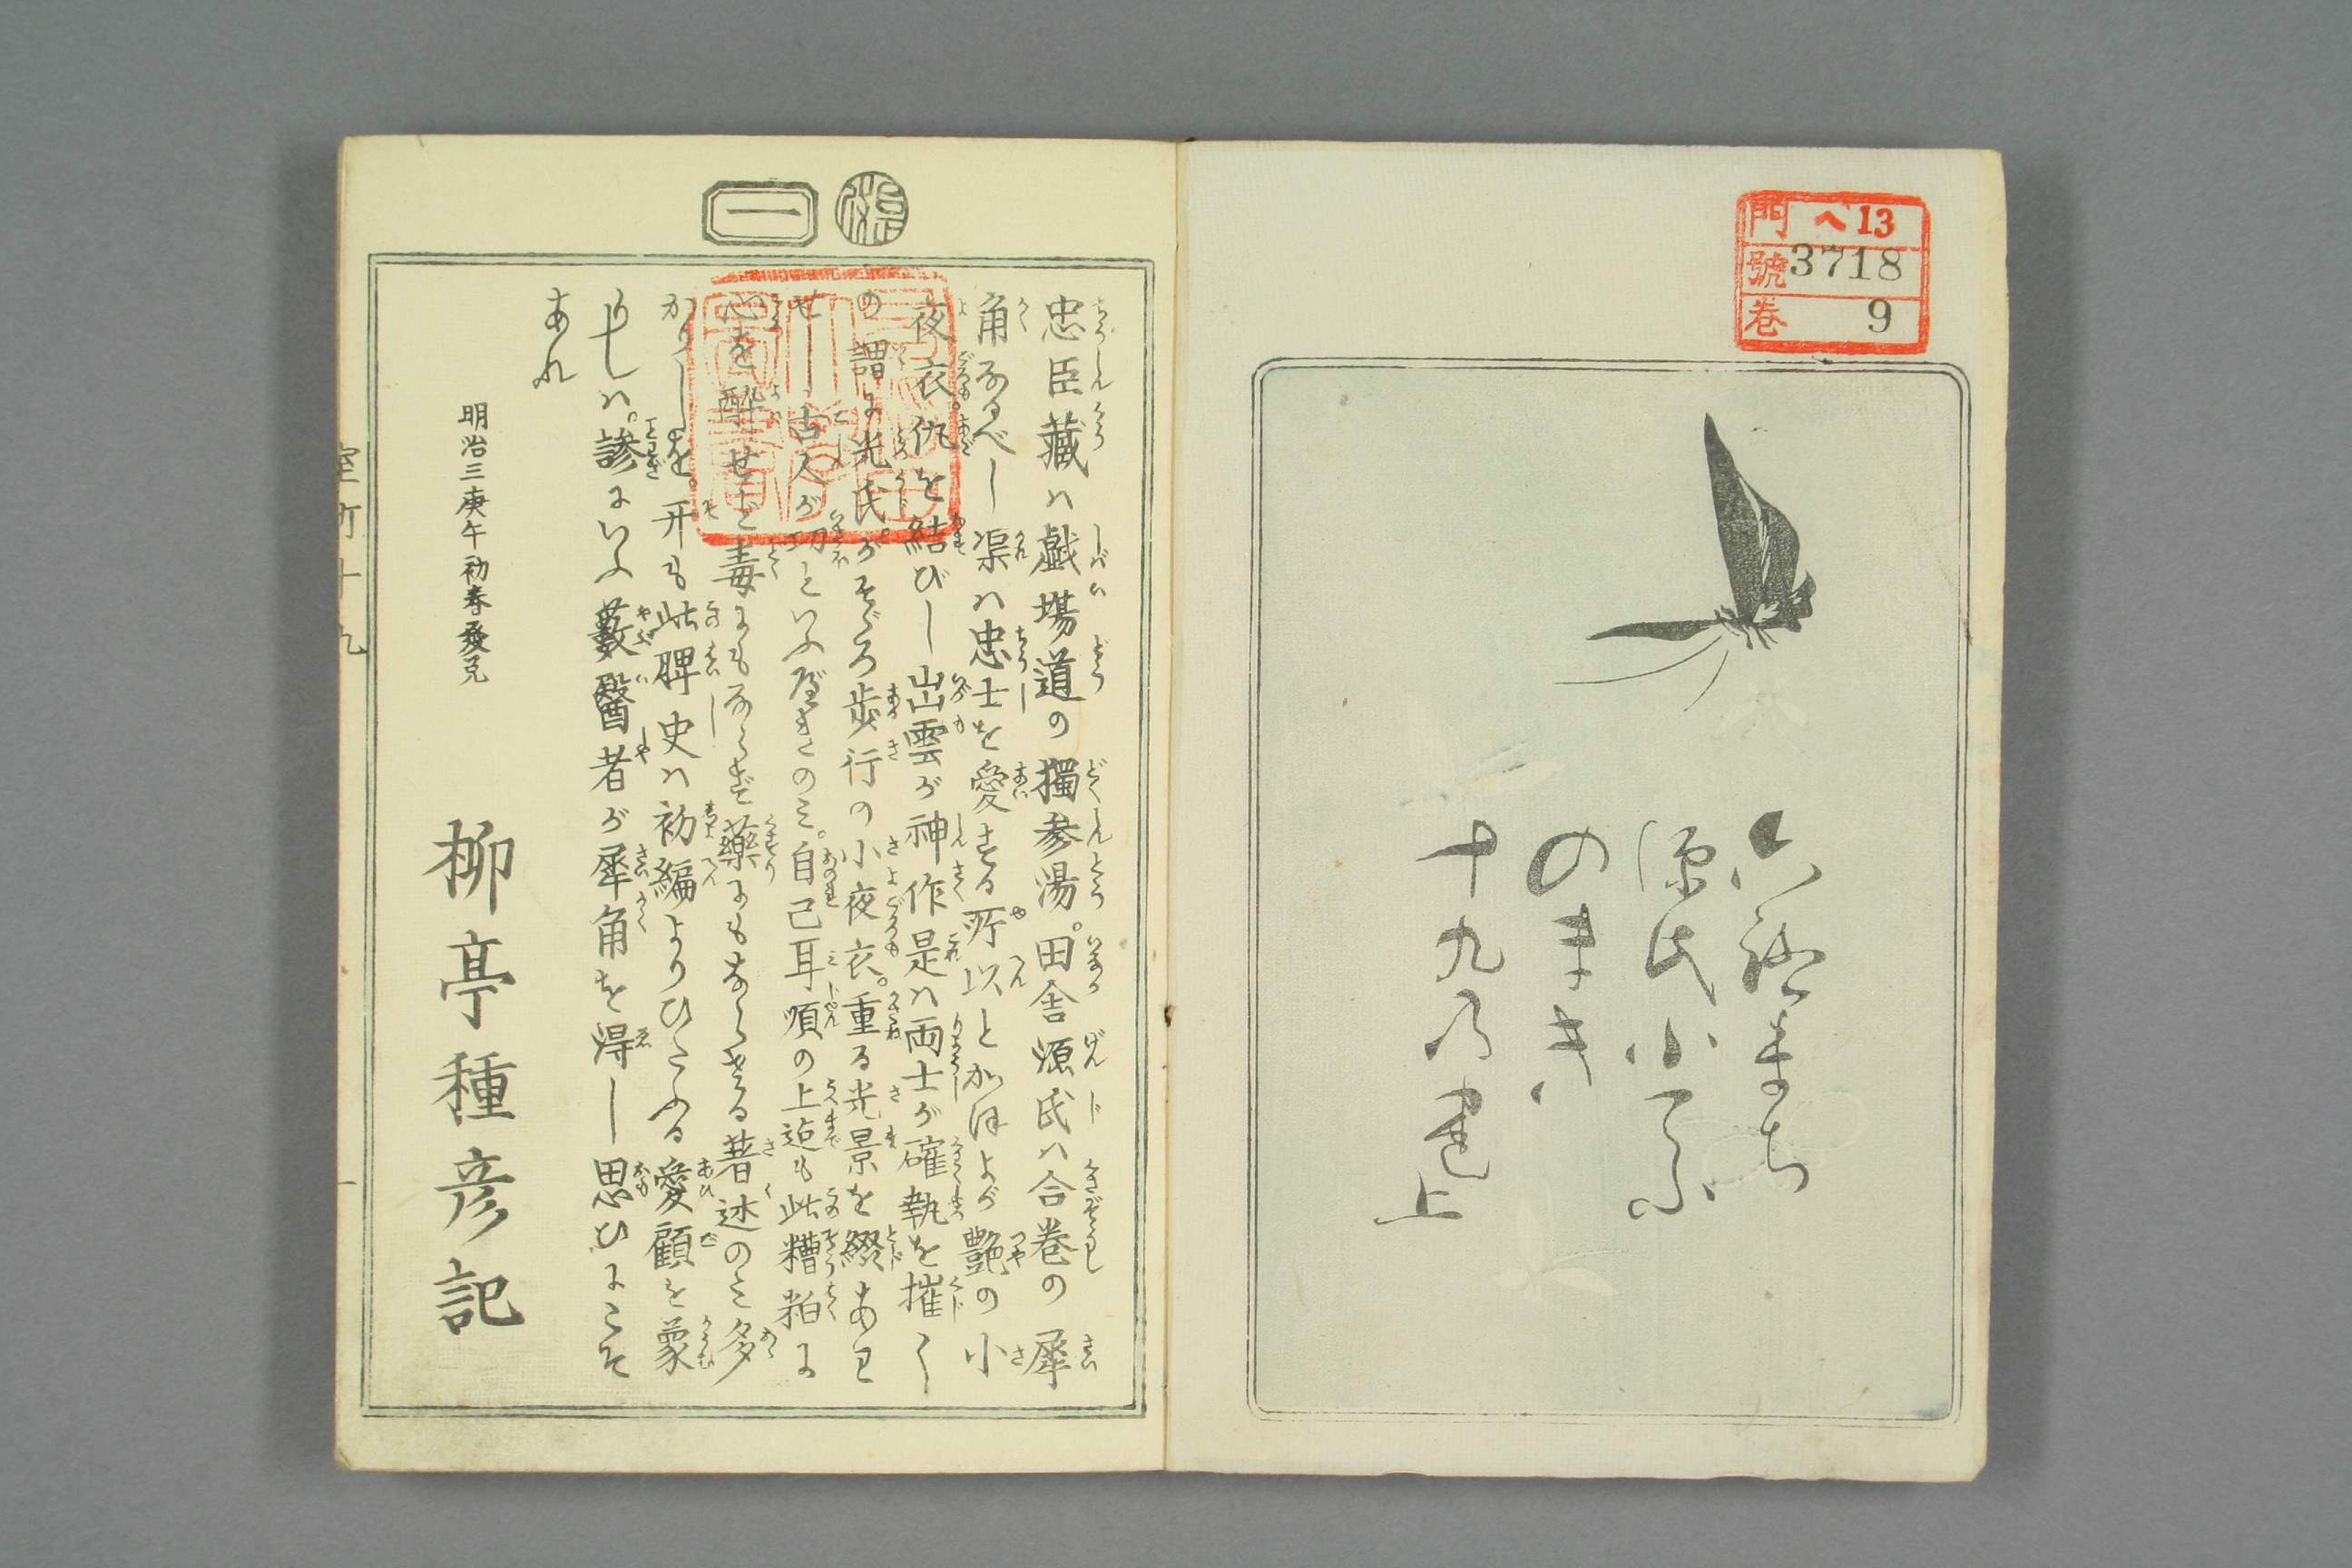 門 ヘ13
號 3718
巻 9
む路まち
源氏小てふ
のまき
十九乃上
一
忠臣藏ハ戯塲道の獨参湯。田舎源氏ハ合巻の犀
角なるべし渠ハ忠士を愛する所以とかほよが艶の小
夜衣。仇を結びし出雲が神作是ハ両士が確執を摧く
の謂に光氏がそゞろ歩行の小夜衣。重る光景を綴あわ
せしハ古人が功といふべきのミ。自己耳順の上迠も此糟粕に
心を醉せど毒にもならず藥にもならざる著述のミ多
かりしを。开も此稗史ハ初編よりひたふる愛顧を蒙
りしハ。諺にいふ藪醫者が犀角を得し思ひにこそ
あれ
明治三庚午初春發兌
柳亭種彦記
室町十九
一